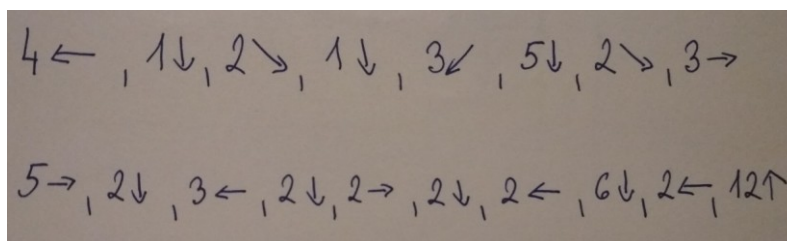 4←, 1↓, 2↘, 1↓, 3↙, 5↓, 2↘, 3→
5→, 2↓, 3←, 2↓, 2→, 2↓, 2←, 6↓, 2←, 12↑